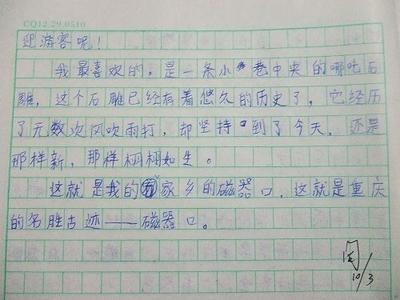 CQ12.29.0510
迎游客呢！
我最喜欢的，是一条小巷中央的哪吒石
雕，这个石雕已经有着悠久的历史了，它经历
了无数次风吹雨打，却坚持到了今天，还是
那样新，那样栩栩如生。
这就是我的家乡的磁器口，这就是重庆
的名胜古迹——磁器口。
阅
10/3